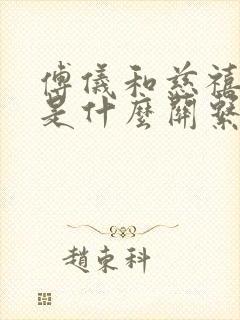 傅儀和慈禧
是什麼關繫
趙東科